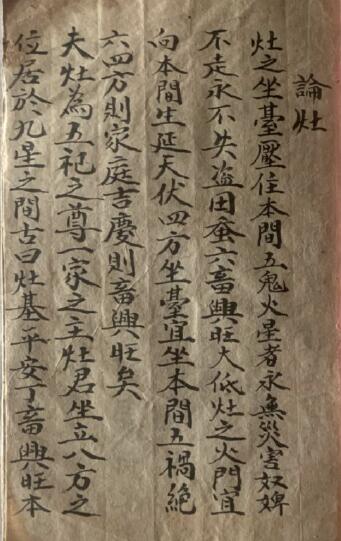 論灶
灶之坐臺壓住本間五鬼火星者永無災害奴婢
不走永不失盗田蚕六畜興旺大低灶之火門宜
向本間生延天伏四方坐臺宜坐本間五禍絶
六四方則家庭吉慶則畜興旺矣
夫灶為五祀之尊一家之主灶君坐立八方之
位居於九星之間古曰灶基平安丁畜興旺本